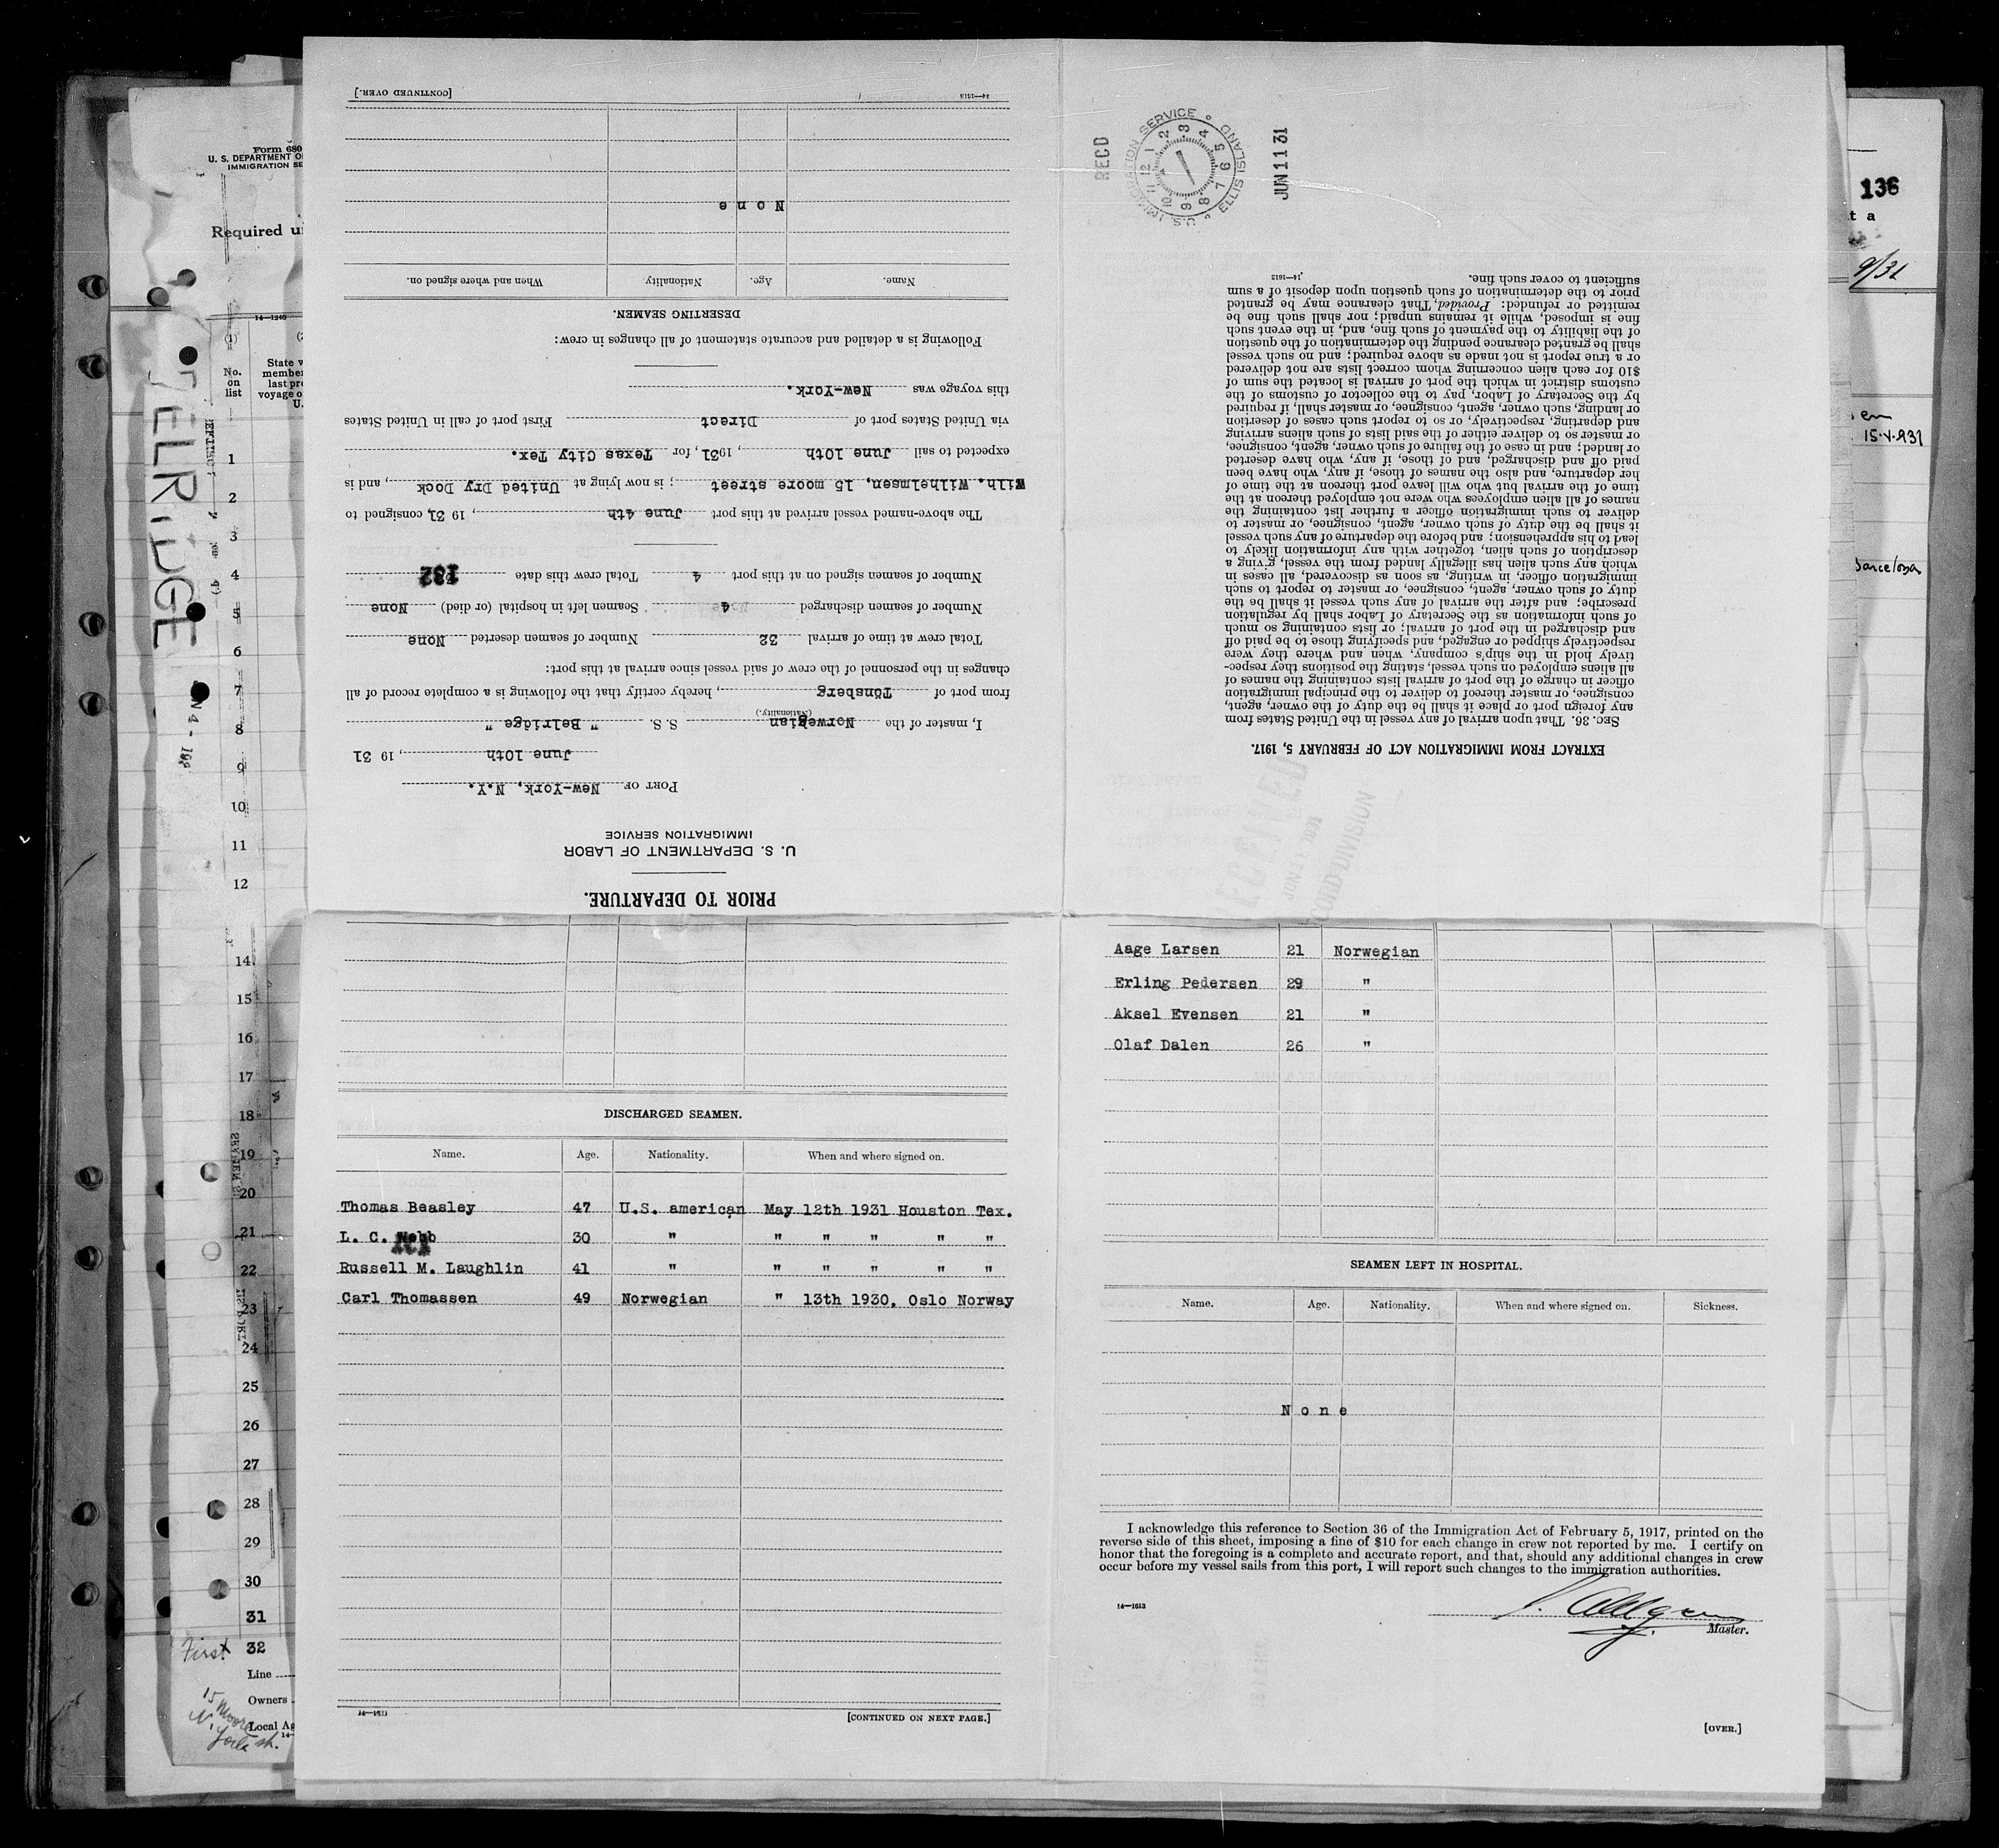 PRIOR TO DEPARTURE.
U. S. DEPARTMENT OF LABOR
IMMIGRATION SERVICE
PORT OF New-York, N.Y.
June 10th, 19 31
I, master of the Norwegian S. S. " Belridge "
(Nationality.)
from port of Tönsberg, hereby certify that the following is a complete record of all
changes in the personnel of the crew of said vessel since arrival at this port:
Total crew at time of arrival 32 Number of seamen deserted None
Number of seamen discharged 4 Seamen left in hospital (or died) None
Number of seamen signed on at this port 4 Total crew this date 32
The above-named vessel arrived at this port June 4th, 19 31, consigned to
Wilh. Wilhelmsen, 15 moore street; is now lying at United Dry Dock, and is
expected to sail June 10th, 1931, for Texas City Tex.
via United States port of Direct First port of call in United States
this voyage was New-York.
Following is a detailed and accurate statement of all changes in crew:
DESERTING SEAMEN.
Name. Age. Nationality When and where signed on.
None
14—1613 [CONTINUED OVER.]
EXTRACT FROM IMMIGRATION ACT OF FEBRUARY 5, 1917.
SEC. 36. That upon arrival of any vessel in the United States from
any foreign port or place it shall be the duty of the owner, agent,
consignee, or master thereof to deliver to the principal immigration
officer in charge of the port of arrival lists containing the names of
all aliens employed on such vessel, stating the positions they respec-
tively hold in the ship's company, when and where they were
respectively shipped or engaged, and specifying those to be paid off
and discharged in the port of arrival; or lists containing so much
of such information as the Secretary of Labor shall by regulation
prescribe; and after the arrival of any such vessel it shall be the
duty of such owner, agent, consignee, or master to report to such
immigration officer, in writing, as soon as discovered, all cases in
which any such alien has illegally landed from the vessel, giving a
description of such alien, together with any information likely to
lead to his apprehension; and before the departure of any such vessel
it shall be the duty of such owner, agent, consignee, or master to
deliver to such immigration officer a further list containing the
names of all alien employees who were not employed thereon at the
time of the arrival but who will leave port thereon at the time of
her departure, and also the names of those, if any, who have been
paid off and discharged, and of those, if any, who have deserted
or landed; and in case of the failure of such owner, agent, consignee,
or master so to deliver either of the said lists of such aliens arriving
and departing, respectively, or so to report such cases of desertion
or landing, such owner, agent, consignee, or master shall, if required
by the Secretary of Labor, pay to the collector of customs of the
customs district in which the port of arrival is located the sum of
$10 for each alien concerning whom correct lists are not delivered
or a true report is not made as above required; and no such vessel
shall be granted clearance pending the determination of the question
of the liability to the payment of such fine, and, in the event such
fine is imposed, while it remains unpaid; nor shall such fine be
remitted or refunded: Provided, That clearance may be granted
prior to the determination of such question upon deposit of a sum
sufficient to cover such fine.
14—1613
RECD
U.S. IMMIGRATION SERVICE ELLIS ISLAND
1 2 3 4 5 6 7 8 9 10 11 12
JUN 11 31
DISCHARGED SEAMEN.
Name. Age. Nationality. When and where signed on.
Thomas Beasley 47 U.S. american May 12th 1931 Houston Tex.
L. C. Webb 30 " " " " " "
Russell M. Laughlin 41 " " " " " "
Carl Thomassen 49 Norwegian " 13th 1930, Oslo Norway
14—1613 [CONTINUED ON NEXT PAGE.]
Aage Larsen 21 Norwegian
Erling Pedersen 29 "
Aksel Evensen 21 "
Olaf Dalen 26 "
SEAMEN LEFT IN HOSPITAL.
Name. Age. Nationality. When and where signed on. Sickness.
None
I acknowledge this reference to Section 36 of the Immigration Act of February 5, 1917, printed on the
reverse side of this sheet, imposing a fine of $10 for each change in crew not reported by me. I certify on
honor that the foregoing is a complete and accurate report, and that, should any additional changes in crew
occur before my vessel sails from this port, I will report such changes to the immigration authorities.
14—1613
Master.
[OVER.]
Form 680
U. S. DEPARTMENT O
IMMIGRATION SE
Required u
14—1240
(1)
No.
on
list
State w
membe
last pr
voyage o
U.
1
2
3
4
5
6
7
8
9
10
11
12
14
15
16
17
18
19
20
21
22
23
24
25
26
27
28
29
30
31
First 32
Line
Owners
Local Ag
15 Moore
N. York
ELRIDGE
136
t a
9/31
en
15.V.931
Barcelona